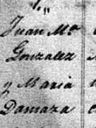 Juan Ma
Gonzalez
y Maria
Damaza